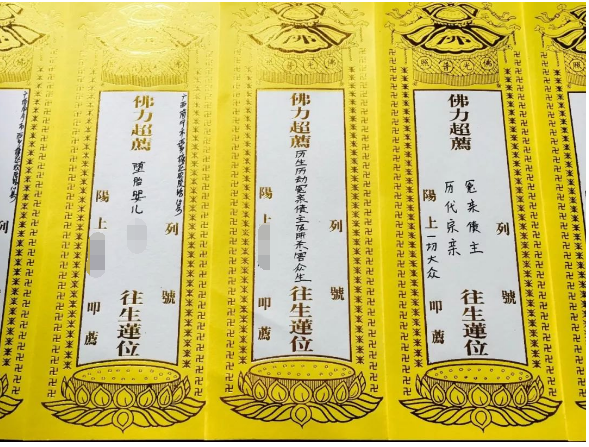 列號
列號
佛力超薦
堕胎婴儿
往生蓮位
陽上
叩薦
列號
佛力超薦
历生历劫冤亲债主及所杀害众生
往生蓮位
陽上
叩薦
列號
佛力超薦
冤亲债主
历代宗亲
往生蓮位
陽上一切大众
叩薦